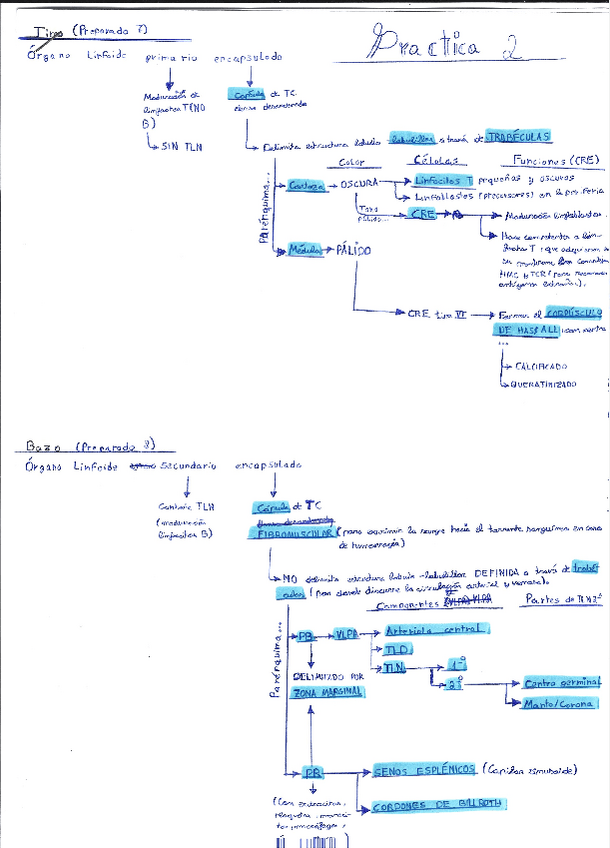 Timo (Preparado 7)
Practica 2
Órgano Linfoide primario encapsulado
Maduración de
linfocitos T (NO
B)
SIN TLN
Cápsula de TC
denso desordenado
Delimita estructura lobulo lobulillar a través de TRABÉCULAS
Color
Células
Funciones (CRE)
Parénquima...
Corteza
OSCURA
Linfocitos T pequeños y oscuros
Linfoblastos (precursores) en la periferia
Tono
pálido...
CRE
Maduración linfoblastos.
Hace competentes a linfocitos T
Médula
PÁLIDO
CRE tipo VI
Forman el CORPÚSCULO
DE HASSALL
...
CALCIFICADO
QUERATINIZADO
Bazo (Preparado 8)
Órgano Linfoide Secundario encapsulado
Contiene TLN
(maduración
linfocitos B)
Cápsula de TC
FIBROMUSCULAR (para exprimir la sangre hacia el torrente sanguíneo en caso
de hemorragia)
NO delimita estructura lobulo-lobulillar DEFINIDA a través de trabé
culas (por donde discurre la circulación arterial y venosa).
Componentes
Partes de TLN 2º
Parénquima...
PB
VLPA
Arteriola central
TLD
TLN
1º
2º
Centro germinal
Manto/Corona
DELIMITADO POR
ZONA MARGINAL
PR
SENOS ESPLÉNICOS (Capilar sinusoide)
CORDONES DE BILLROTH